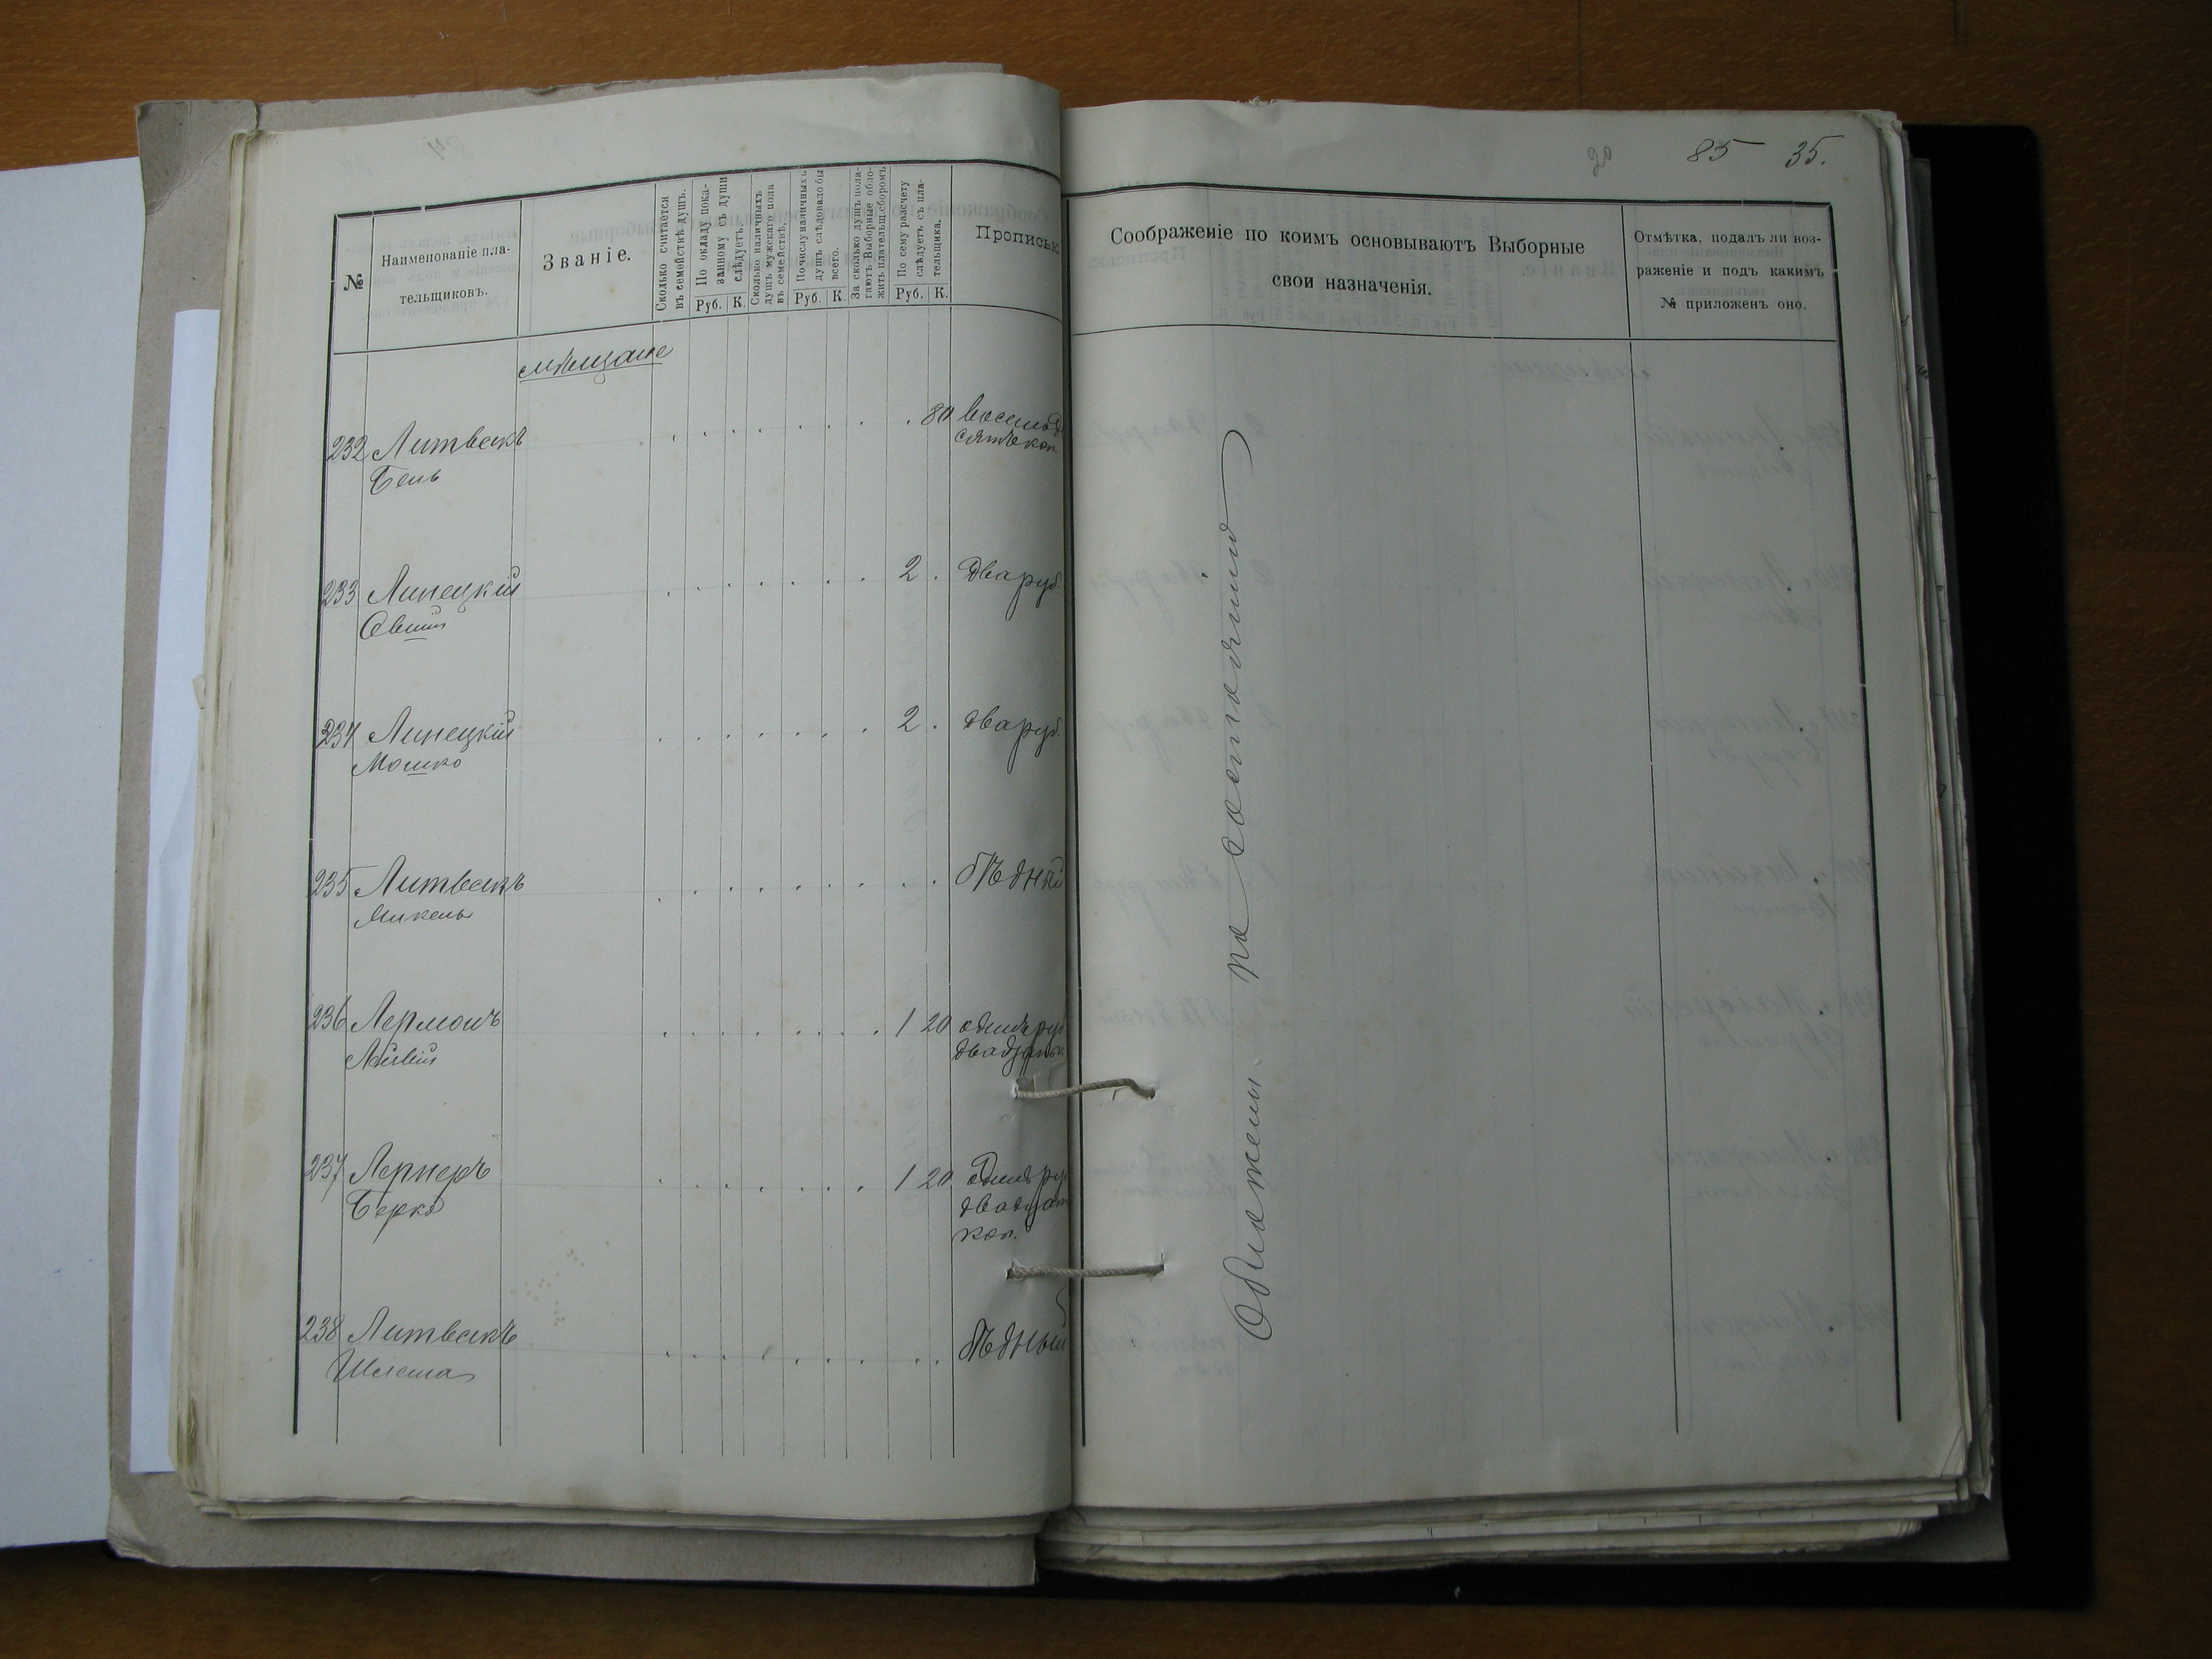 85 35.
№
Наименованіе пла-
тельщиковъ.
Званіе.
Сколько считается
въ семействѣ душъ.
По окладу пока-
занному съ души
слѣдуетъ.
Руб. К.
Сколько наличныхъ
душъ мужскаго пола
въ семействѣ.
По числу наличныхъ
душъ слѣдовало бы
всего.
Руб. К.
За сколько душъ пола-
гаютъ Выборные обло-
жить плательщ. сборомъ.
По сему разсчету
слѣдуетъ съ пла-
тельщика.
Руб. К.
Прописью
Соображеніе по коимъ основываютъ Выборные
свои назначенія.
Отмѣтка, подалъ ли воз-
раженіе и подъ какимъ
№ приложенъ оно.
мѣщане
232 Литвакъ 80 восемьде
Бень сятъ коп.
233 Липецкій 2 . два руб.
234 Липецкій 2 . два руб.
Мошко
235 Литвакъ бѣдный
236 1 20 одинъ руб
двадцать
237 Лернеръ 1 20 одинъ ру
Берко двадцат
коп.
238 Литвакъ бѣдный
Шлема
Обложены по состоянію